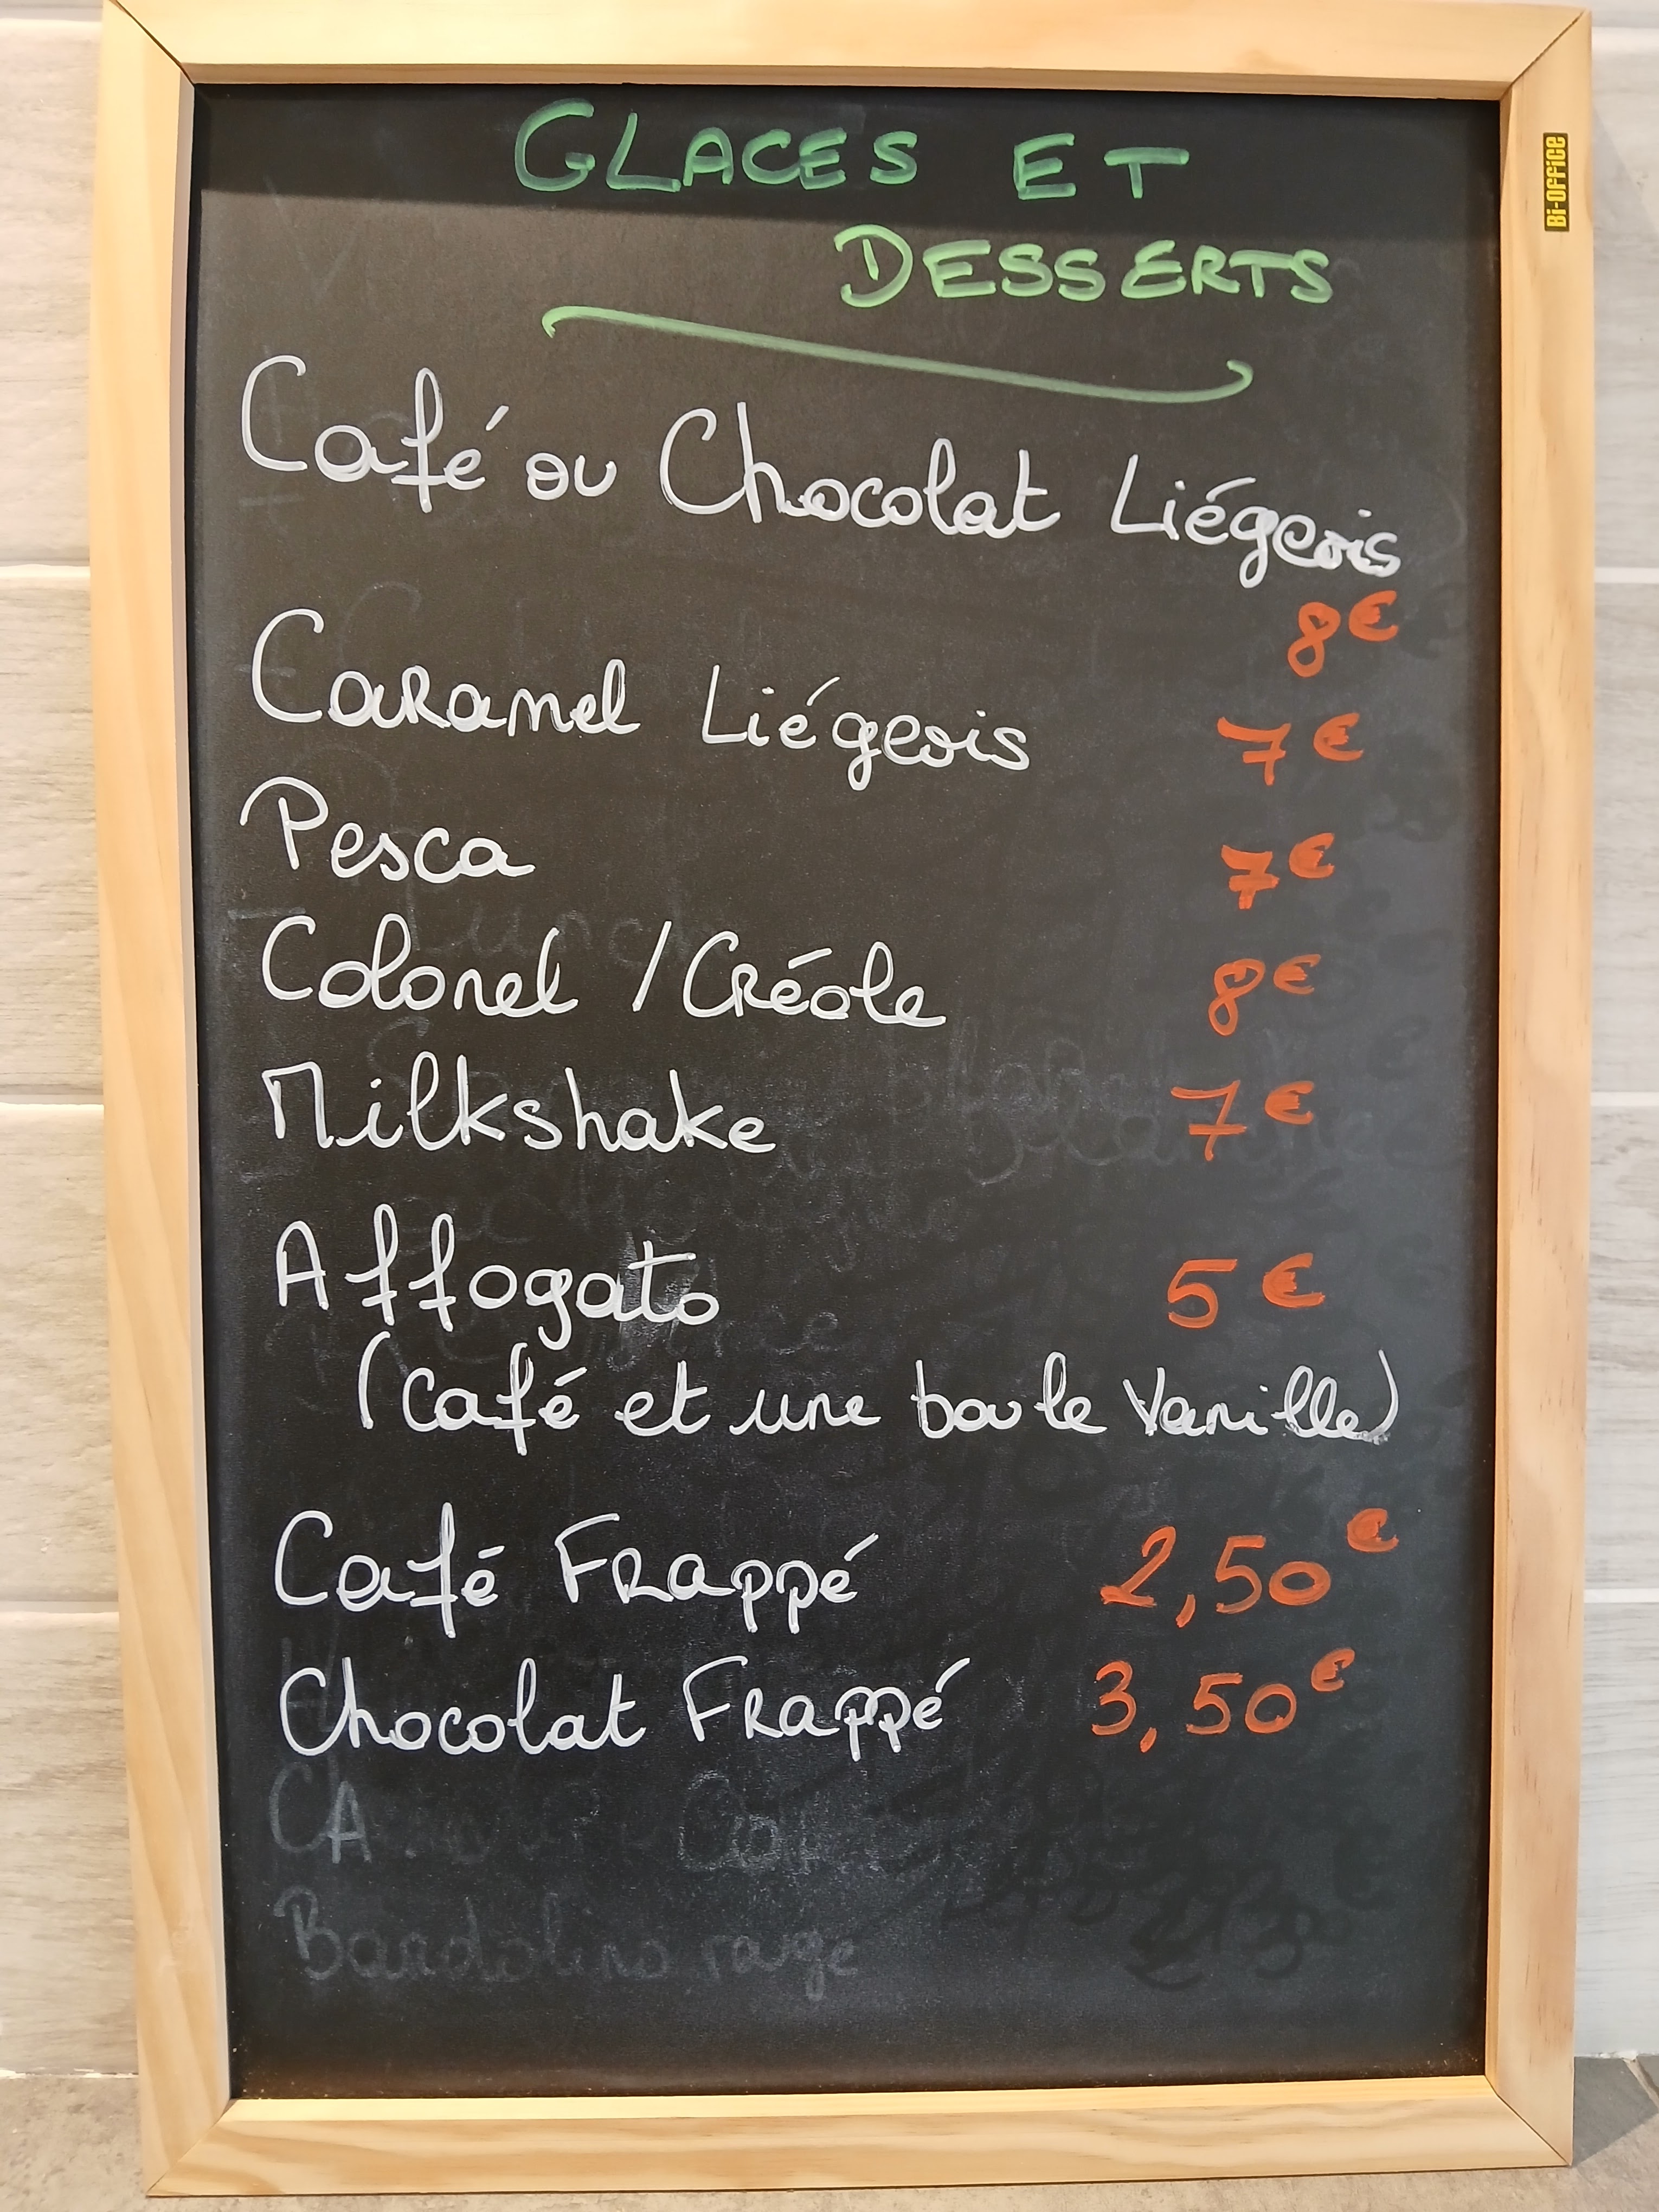 GLACES ET
DESSERTS
Bi-OFFiCE
Café ou Chocolat Liégeois
8€
Caramel Liégeois 7€
Pesca 7€
Colonel / Créole 8€
Milkshake 7€
Affogato 5€
(café et une boule Vanille)
Café Frappé 2,50€
Chocolat Frappé 3,50€
CA
Bardolino rouge